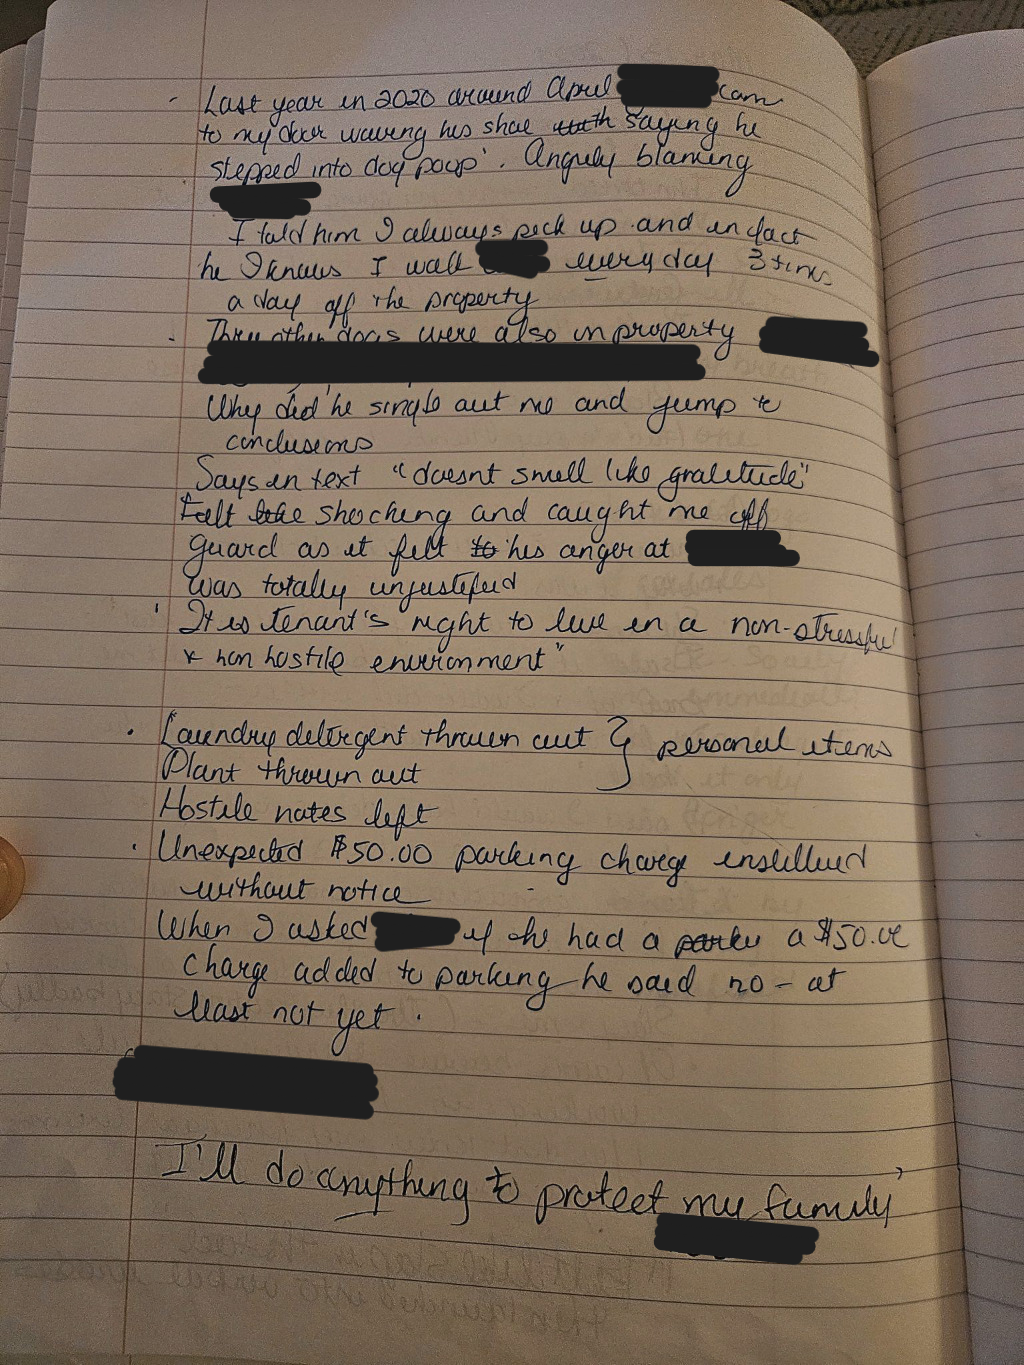 - Last year in 2020 around April cam
to my door waving his shoe saying he
stepped into dog poop'. Angrily blaming
I told him I always pick up and in fact
he knows I walk every day 3 times
a day off the property
· Three other dogs were also in property
Why did he single out me and jump to
conclusions
Says in text "doesnt smell like gratitude"
Felt shocking and caught me off
guard as it felt his anger at
was totally unjustified
' It is tenant's right to live in a non-stressful
& non hostile environment"
· Laundry detergent thrown out } personal items
Plant thrown out
Hostile notes left
· Unexpected $50.00 parking charge
without notice
When I asked if he had a a $50.00
charge added to parking he said no - at
least not yet .
I'll do anything to protect my family'